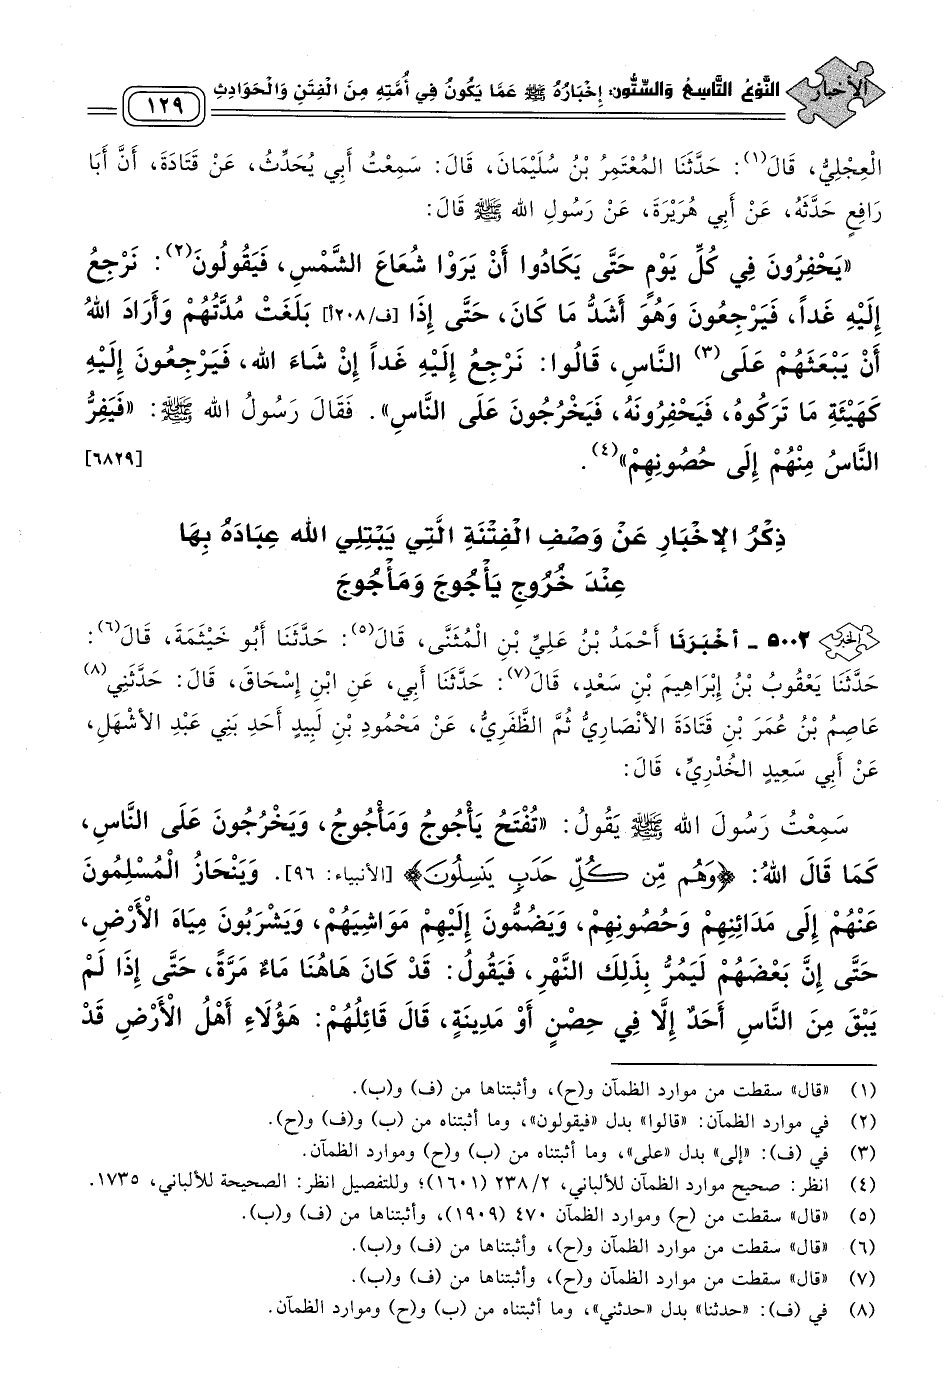 الأخبار النَّوْعُ التَّاسِعُ وَالسِّتُّونَ: إِخْبَارُهُ ﷺ عَمَّا يَكُونُ فِي أُمَّتِهِ مِنَ الْفِتَنِ وَالْحَوَادِثِ ١٢٩
الْعِجْلِيُّ، قَالَ(١): حَدَّثَنَا المُعْتَمِرُ بْنُ سُلَيْمَانَ، قَالَ: سَمِعْتُ أَبِي يُحَدِّثُ، عَنْ قَتَادَةَ، أَنَّ أَبَا
رَافِعٍ حَدَّثَهُ، عَنْ أَبِي هُرَيْرَةَ، عَنْ رَسُولِ الله ﷺ قَالَ:
«يَحْفِرُونَ فِي كُلِّ يَوْمٍ حَتَّى يَكَادُوا أَنْ يَرَوْا شُعَاعَ الشَّمْسِ، فَيَقُولُونَ(٢): نَرْجِعُ
إِلَيْهِ غَداً، فَيَرْجِعُونَ وَهُوَ أَشَدُّ مَا كَانَ، حَتَّى إِذَا [ف/٢٠٨أ] بَلَغَتْ مُدَّتُهُمْ وَأَرَادَ اللهُ
أَنْ يَبْعَثَهُمْ عَلَى(٣) النَّاسِ، قَالُوا: نَرْجِعُ إِلَيْهِ غَداً إِنْ شَاءَ الله، فَيَرْجِعُونَ إِلَيْهِ
كَهَيْئَةِ مَا تَرَكُوهُ، فَيَحْفِرُونَهُ، فَيَخْرُجُونَ عَلَى النَّاسِ». فَقَالَ رَسُولُ الله ﷺ: «فَيَفِرُّ
النَّاسُ مِنْهُمْ إِلَى حُصُونِهِمْ»(٤). [٦٨٢٩]
ذِكْرُ الإخْبَارِ عَنْ وَصْفِ الْفِتْنَةِ الَّتِي يَبْتَلِي الله عِبَادَهُ بِهَا
عِنْدَ خُرُوجِ يَأْجُوجَ وَمَأْجُوجَ
الخبر ٥٠٠٢ - أخْبَرَنَا أَحْمَدُ بْنُ عَلِيِّ بْنِ الْمُثَنَّى، قَالَ(٥): حَدَّثَنَا أَبُو خَيْثَمَةَ، قَالَ(٦):
حَدَّثَنَا يَعْقُوبُ بْنُ إِبْرَاهِيمَ بْنِ سَعْدٍ، قَالَ(٧): حَدَّثَنَا أَبِي، عَنِ ابْنِ إِسْحَاقَ، قَالَ: حَدَّثَنِي(٨)
عَاصِمُ بْنُ عُمَرَ بْنِ قَتَادَةَ الأنْصَارِيُّ ثُمَّ الظَّفَرِيُّ، عَنْ مَحْمُودِ بْنِ لَبِيدٍ أَحَدِ بَنِي عَبْدِ الأشْهَلِ،
عَنْ أَبِي سَعِيدٍ الخُدْرِيِّ، قَالَ:
سَمِعْتُ رَسُولَ الله ﷺ يَقُولُ: «تُفْتَحُ يَأْجُوجُ وَمَأْجُوجُ، وَيَخْرُجُونَ عَلَى النَّاسِ،
كَمَا قَالَ اللهُ: ﴿وَهُم مِّن كُلِّ حَدَبٍ يَنسِلُونَ﴾ [الأنبياء: ٩٦]. وَيَنْحَازُ الْمُسْلِمُونَ
عَنْهُمْ إِلَى مَدَائِنِهِمْ وَحُصُونِهِمْ، وَيَضُمُّونَ إِلَيْهِمْ مَوَاشِيَهُمْ، وَيَشْرَبُونَ مِيَاهَ الْأَرْضِ،
حَتَّى إِنَّ بَعْضَهُمْ لَيَمُرُّ بِذَلِكَ النَّهْرِ، فَيَقُولُ: قَدْ كَانَ هَاهُنَا مَاءٌ مَرَّةً، حَتَّى إِذَا لَمْ
يَبْقَ مِنَ النَّاسِ أَحَدٌ إِلَّا فِي حِصْنٍ أَوْ مَدِينَةٍ، قَالَ قَائِلُهُمْ: هَؤُلَاءِ أَهْلُ الْأَرْضِ قَدْ
(١) «قال» سقطت من موارد الظمآن و(ح)، وأثبتناها من (ف) و(ب).
(٢) في موارد الظمآن: «قالوا» بدل «فيقولون»، وما أثبتناه من (ب) و(ف) و(ح).
(٣) في (ف): «إلى» بدل «على»، وما أثبتناه من (ب) و(ح) وموارد الظمآن.
(٤) انظر: صحيح موارد الظمآن للألباني، ٢/ ٢٣٨ (١٦٠١)؛ وللتفصيل انظر: الصحيحة للألباني، ١٧٣٥.
(٥) «قال» سقطت من (ح) وموارد الظمآن ٤٧٠ (١٩٠٩)، وأثبتناها من (ف) و(ب).
(٦) «قال» سقطت من موارد الظمآن و(ح)، وأثبتناها من (ف) و(ب).
(٧) «قال» سقطت من موارد الظمآن و(ح)، وأثبتناها من (ف) و(ب).
(٨) في (ف): «حدثنا» بدل «حدثني»، وما أثبتناه من (ب) و(ح) وموارد الظمآن.